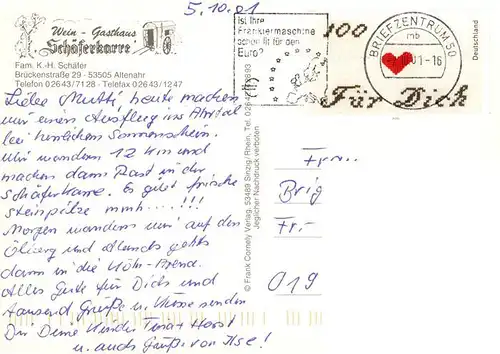 5.10.01
Wein - Gasthaus
Schäferkarre
Fam. K.-H. Schäfer
Brückenstraße 29 - 53505 Altenahr
Telefon 02643/7128 - Telefax 02643/1247
Liebe Mutti, heute machen
wir einen Ausflug ins Ahrtal
bei herrlichem Sonnenschein.
Wir wandern 12 km und
machen dann Rast in der
Schäferkarre. Es gibt frische
Steinpilze mmh....!!!
Morgen wandern wir auf den
Ölberg und abends gehts
dann in die Köln-Arena.
Alles Gute für Dich und
tausend Grüße u. Küsse senden
Dir Deine Kinder Tina + Horst
u. auch Grüße von Ilse!
© Frank Cornely Verlag, 53489 Sinzig/Rhein, Tel. 02642
Jeglicher Nachdruck verboten
Ist Ihre
Frankiermaschine
schon fit für den
Euro?
100
Für Dich
Deutschland
BRIEFZENTRUM 50
mb
01-16
Brig
Fr.
019